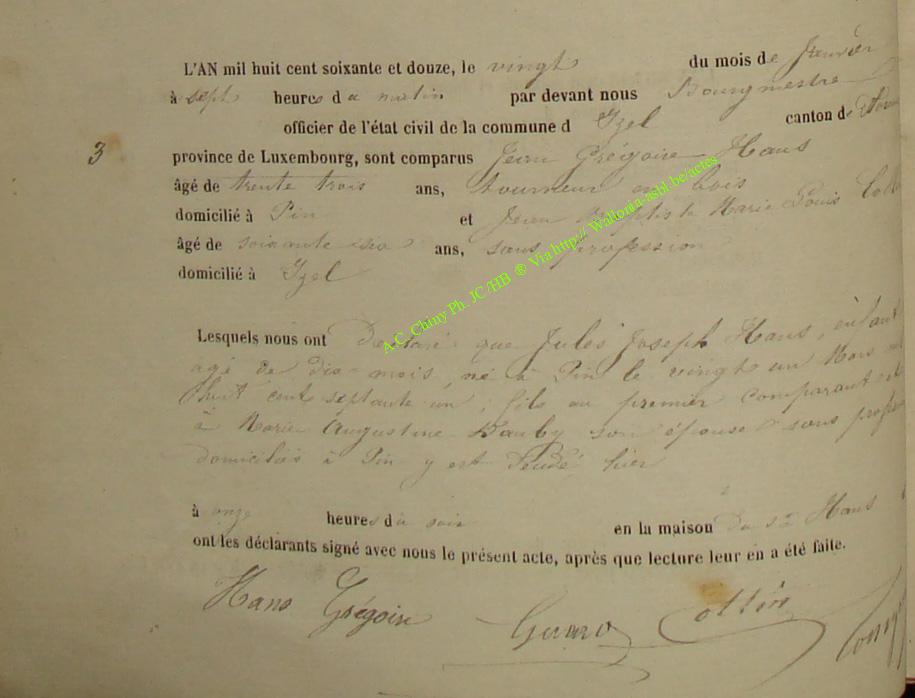 L'AN mil huit cent soixante et douze, le vingt du mois de Janvier
à sept heures du matin par devant nous Bourgmestre
officier de l'état civil de la commune d Izel canton de
3
province de Luxembourg, sont comparus Jean Grégoire Hans
âgé de trente trois ans, tourneur en bois
domicilié à Pin et Jean Baptiste Marie Louis
âgé de soixante six ans, sans profession
domicilié à Izel
Lesquels nous ont Déclaré que Jules Joseph Hans, enfant
agé de dix mois, né à Pin le vingt un Mars
huit cent septante un, fils au premier comparant et
à Marie Augustine son épouse sans
domiciliés à Pin y est décédé hier
à onze heures du soir en la maison du sr Hans
ont les déclarants signé avec nous le présent acte, après que lecture leur en a été faite.
Hans Grégoire Collin
A.C. Chiny Ph. JC/HB ® Via http:// Wallonia-asbl.be/actes